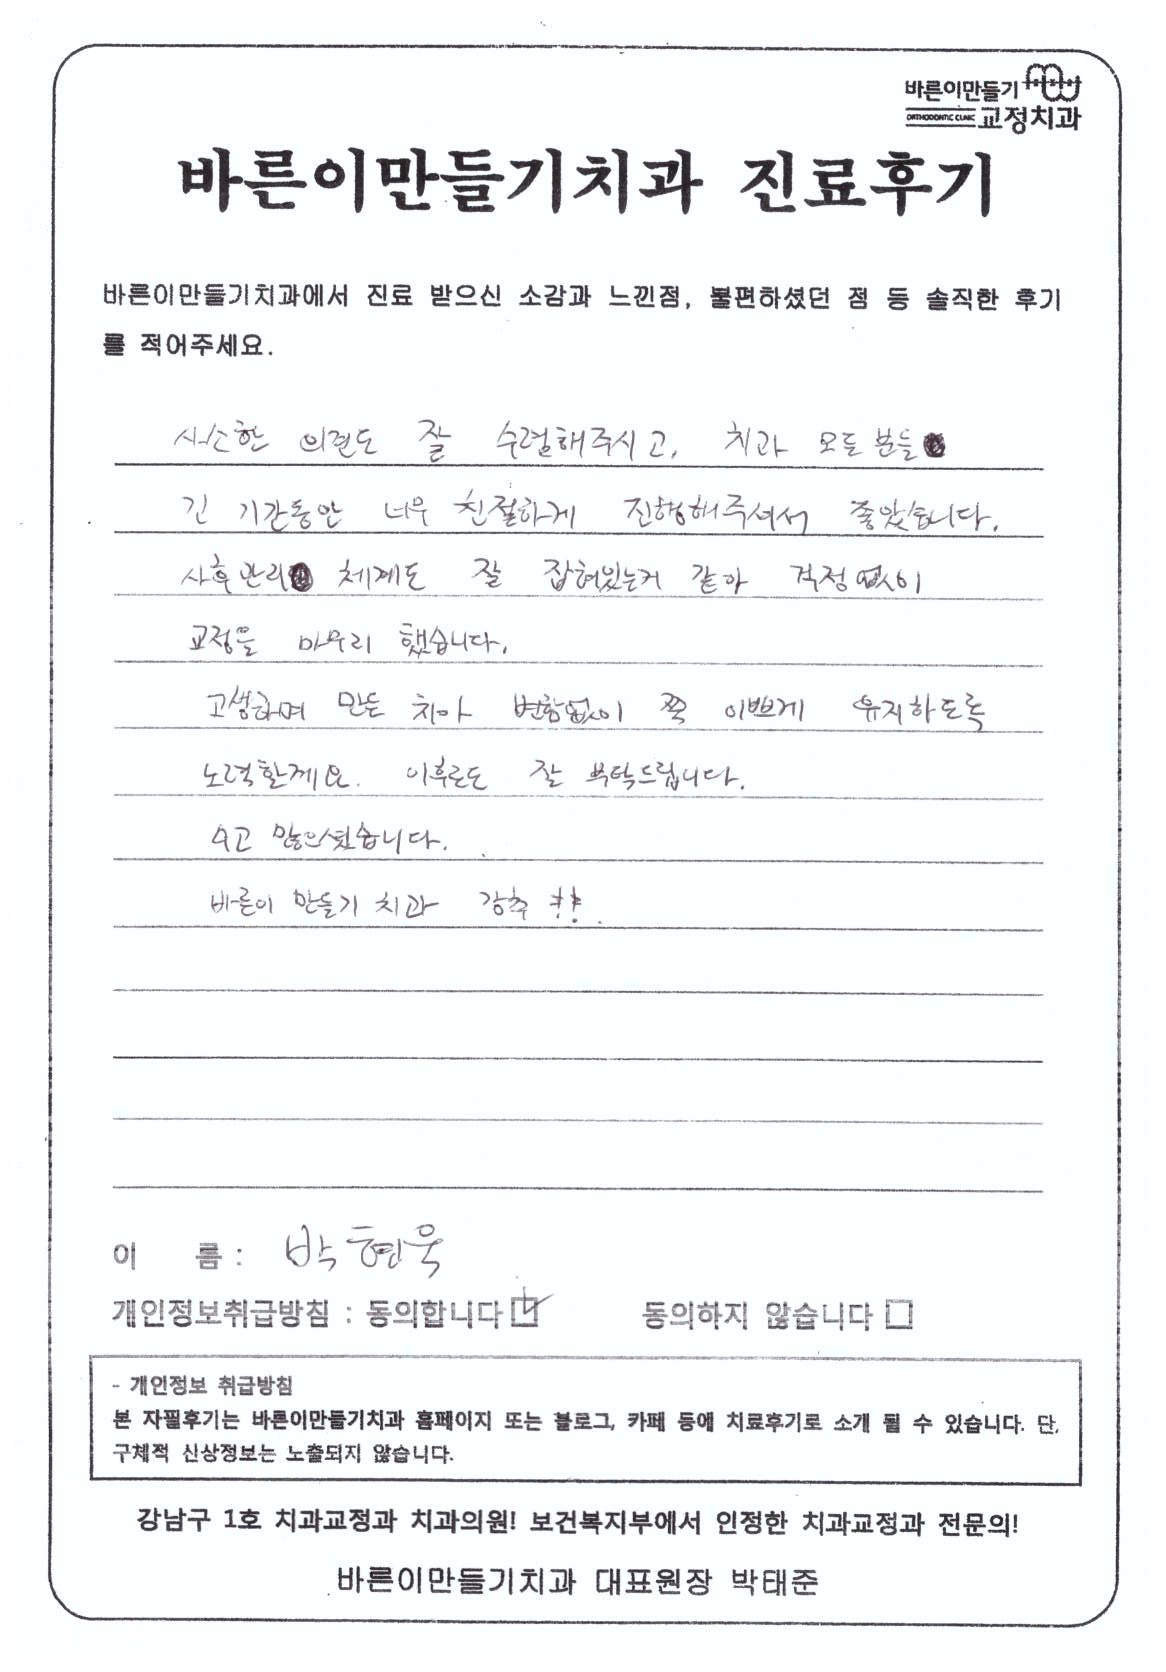 바른이만들기
ORTHODONTIC CLINIC 교정치과
바른이만들기치과 진료후기
바른이만들기치과에서 진료 받으신 소감과 느낀점, 불편하셨던 점 등 솔직한 후기
를 적어주세요.
사소한 의견도 잘 수렴해주시고, 치과 모든 분들
긴 기간동안 너무 친절하게 진행해주셔서 좋았습니다.
사후관리 체계도 잘 잡혀있는거 같아 걱정없이
교정을 마무리 했습니다.
고생하며 만든 치아 변함없이 쭉 이쁘게 유지하도록
노력할게요. 이후로도 잘 부탁드립니다.
수고 많으셨습니다.
바른이 만들기 치과 강추!!
이 름 : 박현욱
개인정보취급방침 : 동의합니다 동의하지 않습니다
- 개인정보 취급방침
본 자필후기는 바른이만들기치과 홈페이지 또는 블로그, 카페 등에 치료후기로 소개 될 수 있습니다. 단,
구체적 신상정보는 노출되지 않습니다.
강남구 1호 치과교정과 치과의원! 보건복지부에서 인정한 치과교정과 전문의!
바른이만들기치과 대표원장 박태준